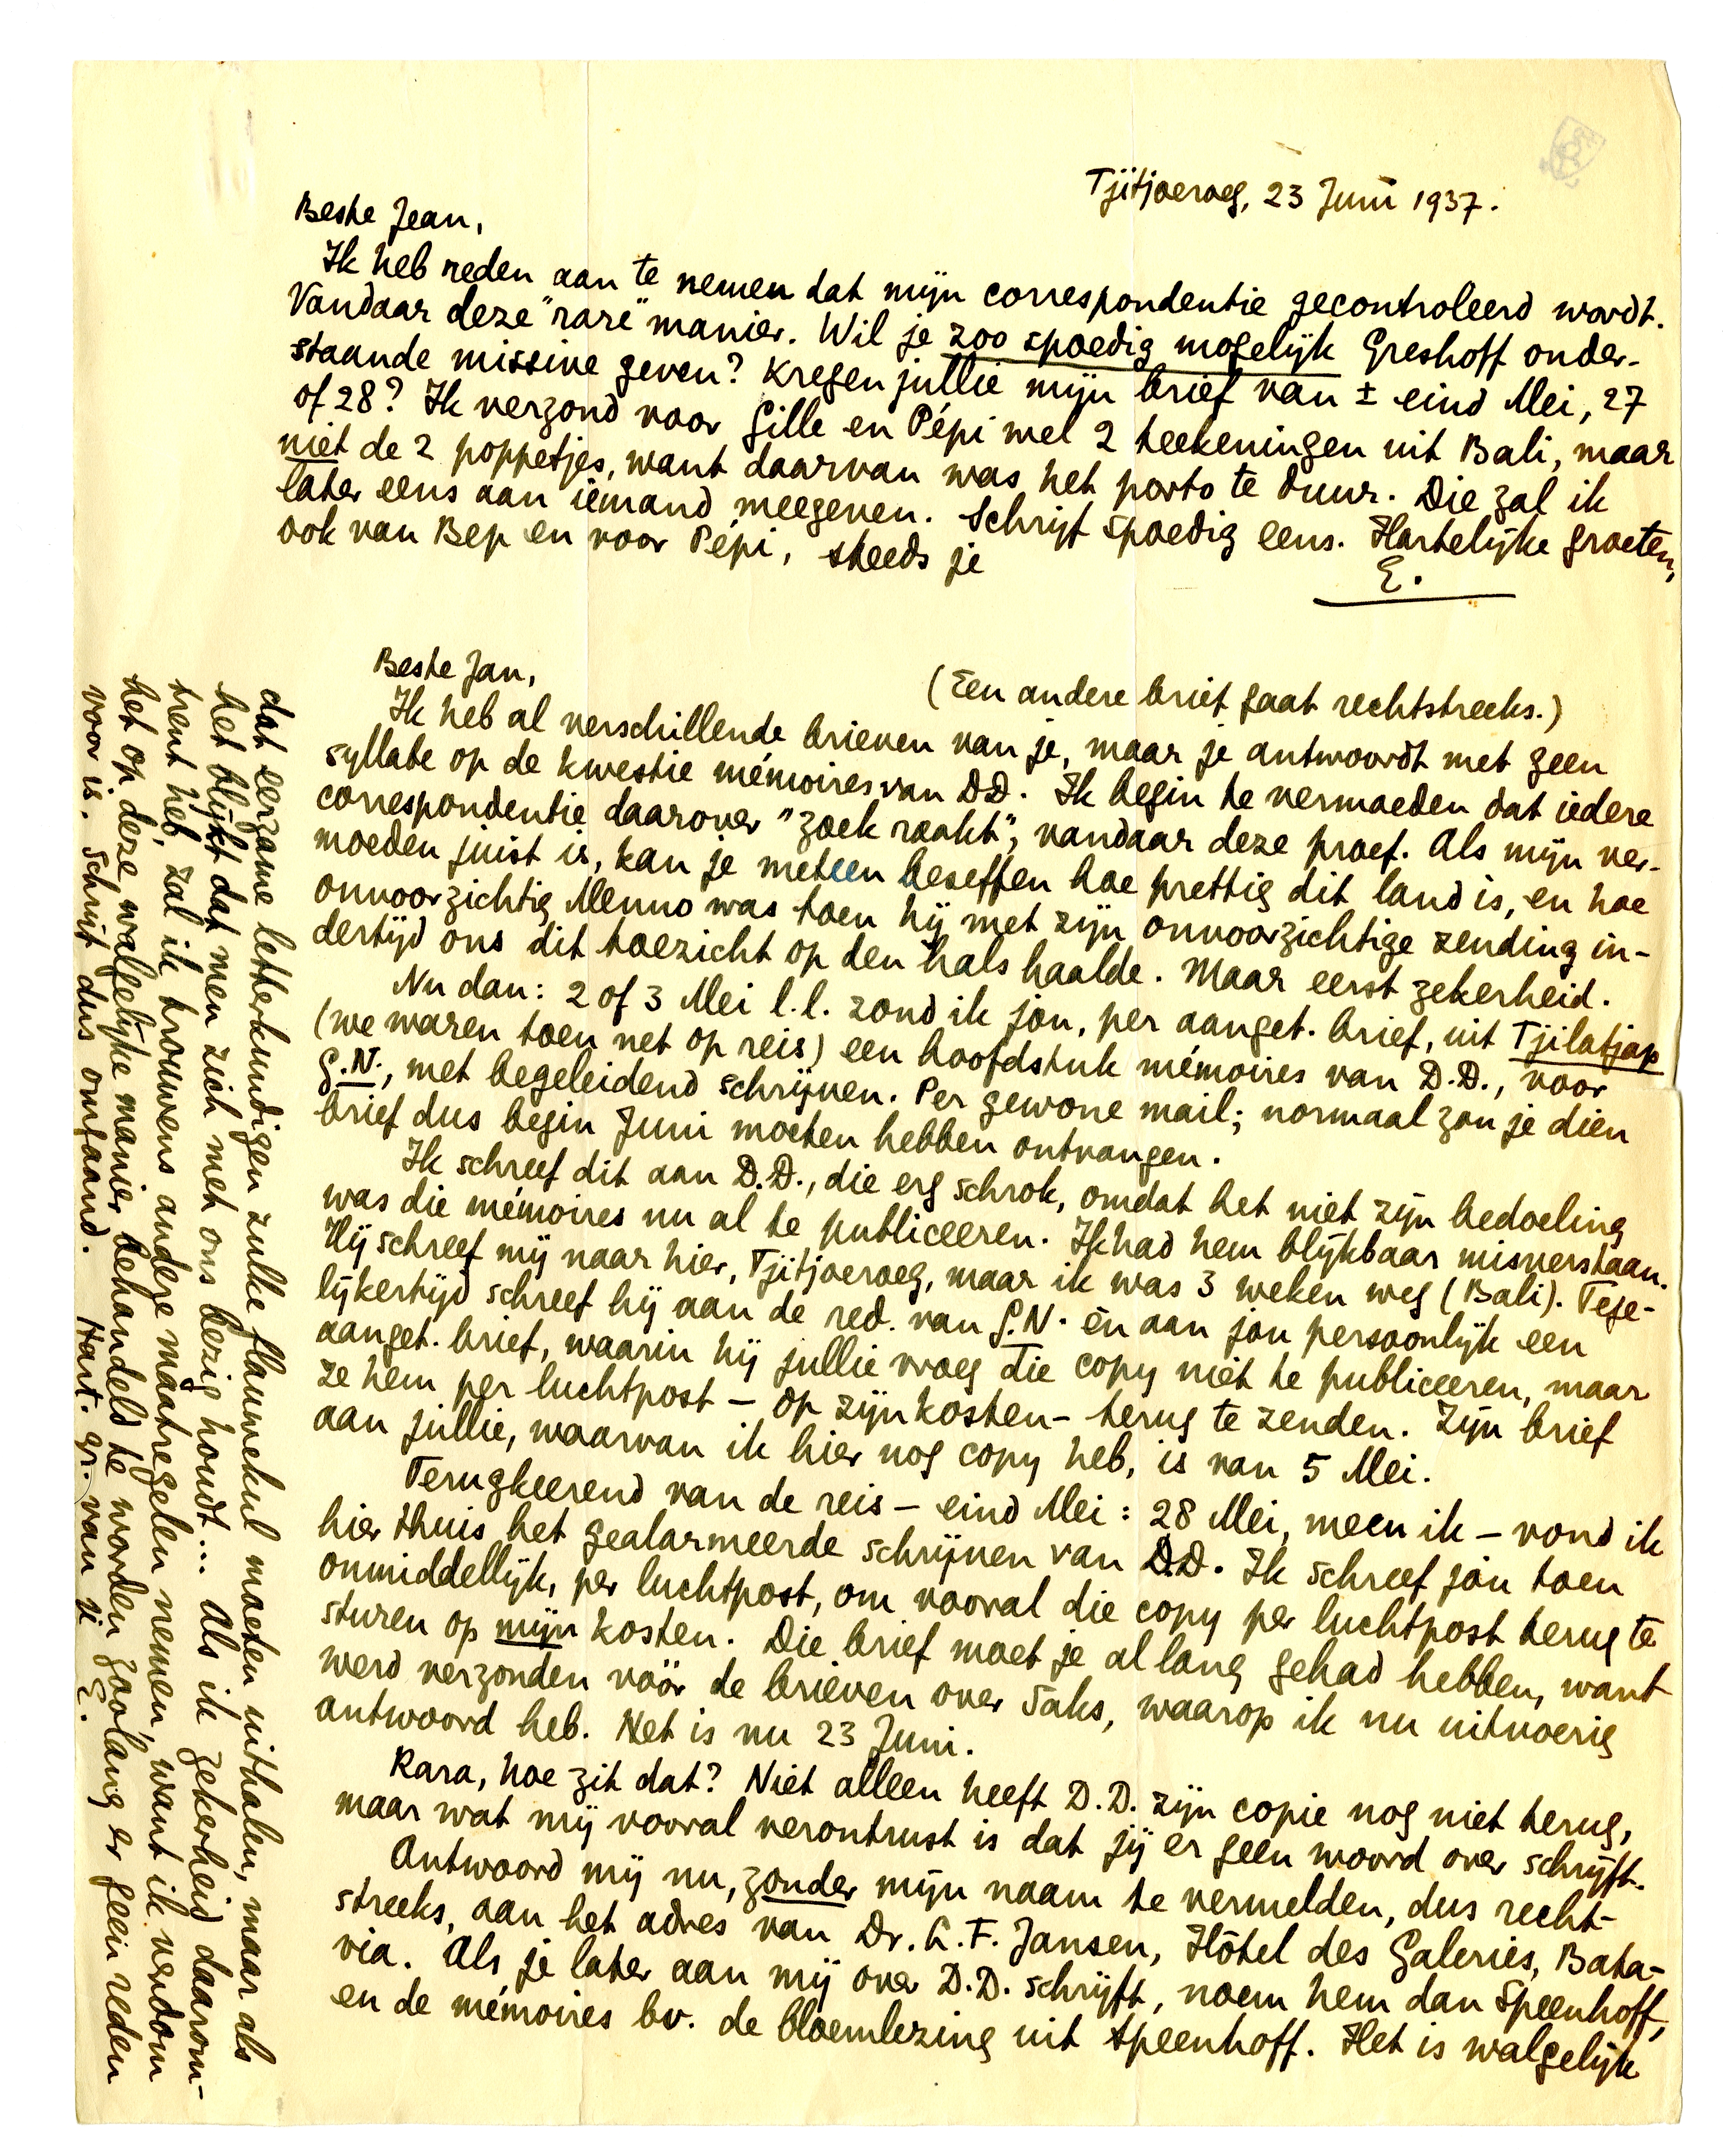 Tjitjoeroeg, 23 Juni 1937.
Beste Jean,
Ik heb reden aan te nemen dat mijn correspondentie gecontroleerd wordt.
Vandaar deze "rare" manier. Wil je zoo spoedig mogelijk Greshoff onder-
staande missive geven? Kregen jullie mijn brief van ± eind Mei, 27
of 28? Ik verzond voor Gille en Pépi wel 2 teekeningen uit Bali, maar
niet de 2 poppetjes, want daarvan was het porto te duur. Die zal ik
later eens aan iemand meegeven. Schrijf spoedig eens. Hartelijke groeten,
ook van Bep en voor Pépi, steeds je
E.
Beste Jan,
(Een andere brief gaat rechtstreeks.)
Ik heb al verschillende brieven van je, maar je antwoordt met geen
syllabe op de kwestie mémoires van DD. Ik begin te vermoeden dat iedere
correspondentie daarover "zoek raakt"; vandaar deze proef. Als mijn ver-
moeden juist is, kan je meteen beseffen hoe prettig dit land is, en hoe
onvoorzichtig Menno was toen hij met zijn onvoorzichtige zending in-
dertijd ons dit toezicht op den hals haalde. Maar eerst zekerheid.
Nu dan: 2 of 3 Mei l.l. zond ik jou, per aanget. brief, uit Tjilatjap
(we waren toen net op reis) een hoofdstuk mémoires van D.D., voor
G.N., met begeleidend schrijven. Per gewone mail; normaal zou je dien
brief dus begin Juni moeten hebben ontvangen.
Ik schreef dit aan D.D., die erg schrok, omdat het niet zijn bedoeling
was die mémoires nu al te publiceeren. Ik had hem blijkbaar misverstaan.
Hij schreef mij naar hier, Tjitjoeroeg, maar ik was 3 weken weg (Bali). Tege-
lijkertijd schreef hij aan de red. van G.N. èn aan jou persoonlijk een
aanget. brief, waarin hij jullie vroeg die copy niet te publiceeren, maar
ze hem per luchtpost – op zijn kosten – terug te zenden. Zijn brief
aan jullie, waarvan ik hier nog copy heb, is van 5 Mei.
Terugkeerend van de reis – eind Mei: 28 Mei, meen ik – vond ik
hier thuis het gealarmeerde schrijven van D.D. Ik schreef jou toen
onmiddellijk, per luchtpost, om vooral die copy per luchtpost terug te
sturen op mijn kosten. Die brief moet je al lang gehad hebben, want
werd verzonden vóór de brieven over Saks, waarop ik nu uitvoerig
antwoord heb. Het is nu 23 Juni.
Rara, hoe zit dat? Niet alleen heeft D.D. zijn copie nog niet terug,
maar wat mij vooral verontrust is dat jij er geen woord over schrijft.
Antwoord mij nu, zonder mijn naam te vermelden, dus recht-
streeks, aan het adres van Dr. G. F. Jansen, Hôtel des Galeries, Bata-
via. Als je later aan mij over D.D. schrijft, noem hem dan Speenhoff,
en de mémoires bv. de bloemlezing uit Speenhoff. Het is walgelijk
dat eerzame letterkundigen zulke flauwekul moeten uithalen, maar als
het blijkt dat men zich met ons bezig houdt... Als ik zekerheid daarom-
trent heb, zal ik trouwens andere maatregelen nemen, want ik verdom
het op deze walgelijke manier behandeld te worden zoolang er geen reden
voor is. Schrijf dus omgaand. Hart. gr. van je E.